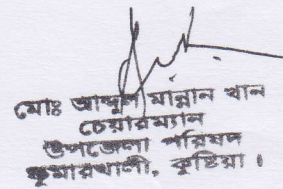 মোঃ আব্দুল মান্নান খান
চেয়ারম্যান
উপজেলা পরিষদ
কুমারখালী, কুষ্টিয়া।